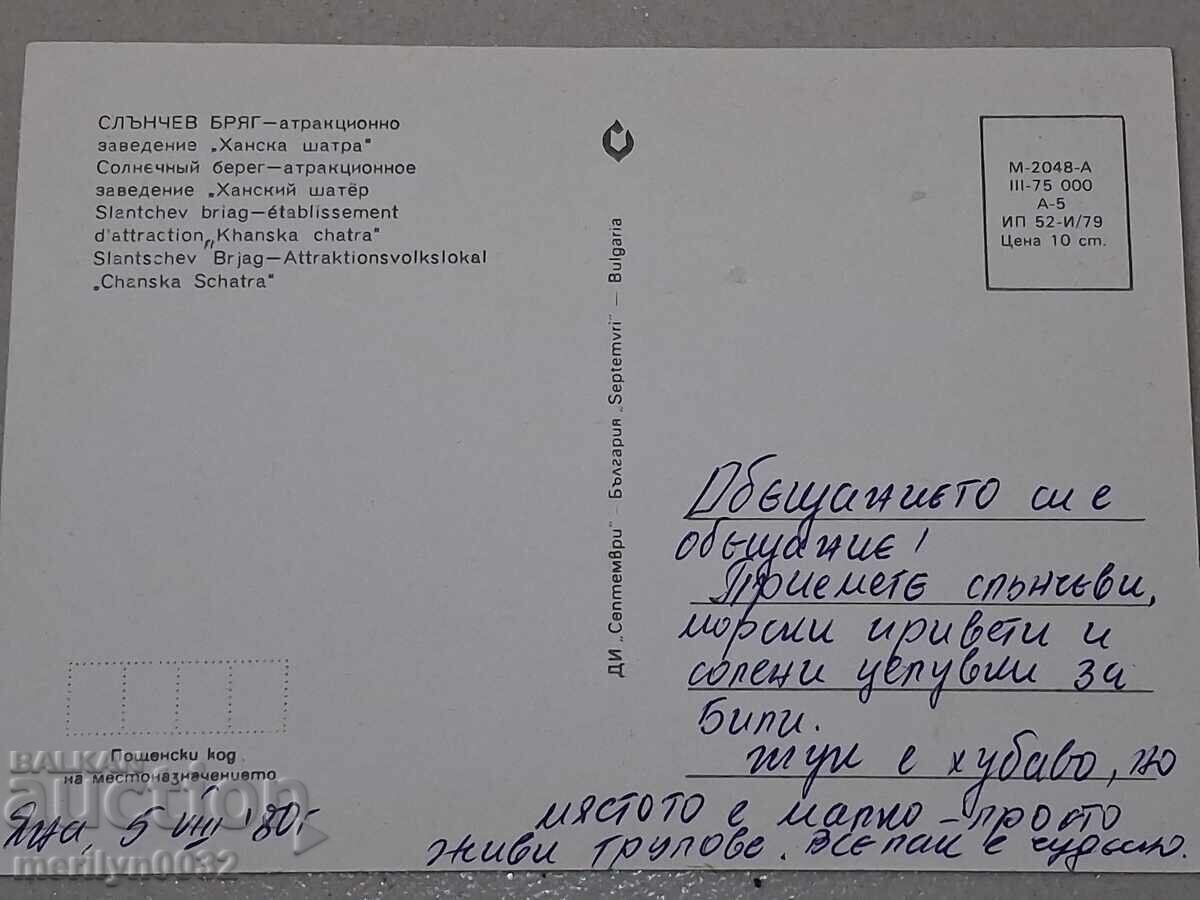 СЛЪНЧЕВ БРЯГ—атракционно
заведение „Ханска шатра"
Солнечный берег—атракционное
заведение „Ханский шатёр
Slantchev briag—établissement
d'attraction „Khanska chatra"
Slantschev Brjag—Attraktionsvolkslokal
„Chanska Schatra"
ДИ „Септември" — България „Septemvri" — Bulgaria
М-2048-А
III-75 000
А-5
ИП 52-И/79
Цена 10 ст.
Обещанието си е
обещание!
Приемете слънчеви,
морски привети и
солени целувки за
Били.
Тук е хубаво, но
мястото е малко - просто
живи трупове. Все пак е чудесно.
Пощенски код
на местоназначението
5 VIII '80г
BALKAN
auction
merilyn0032